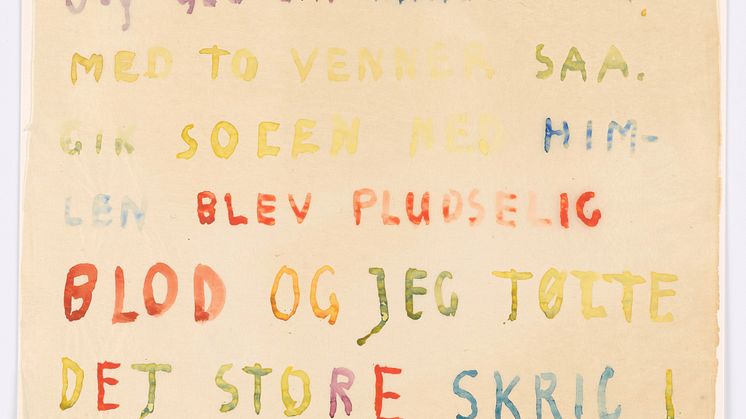 MED TO VENNER SAA.
GIK SOLEN NED HIM-
LEN BLEV PLUDSELIG
BLOD OG JEG FØLTE
DET STORE SKRIG I